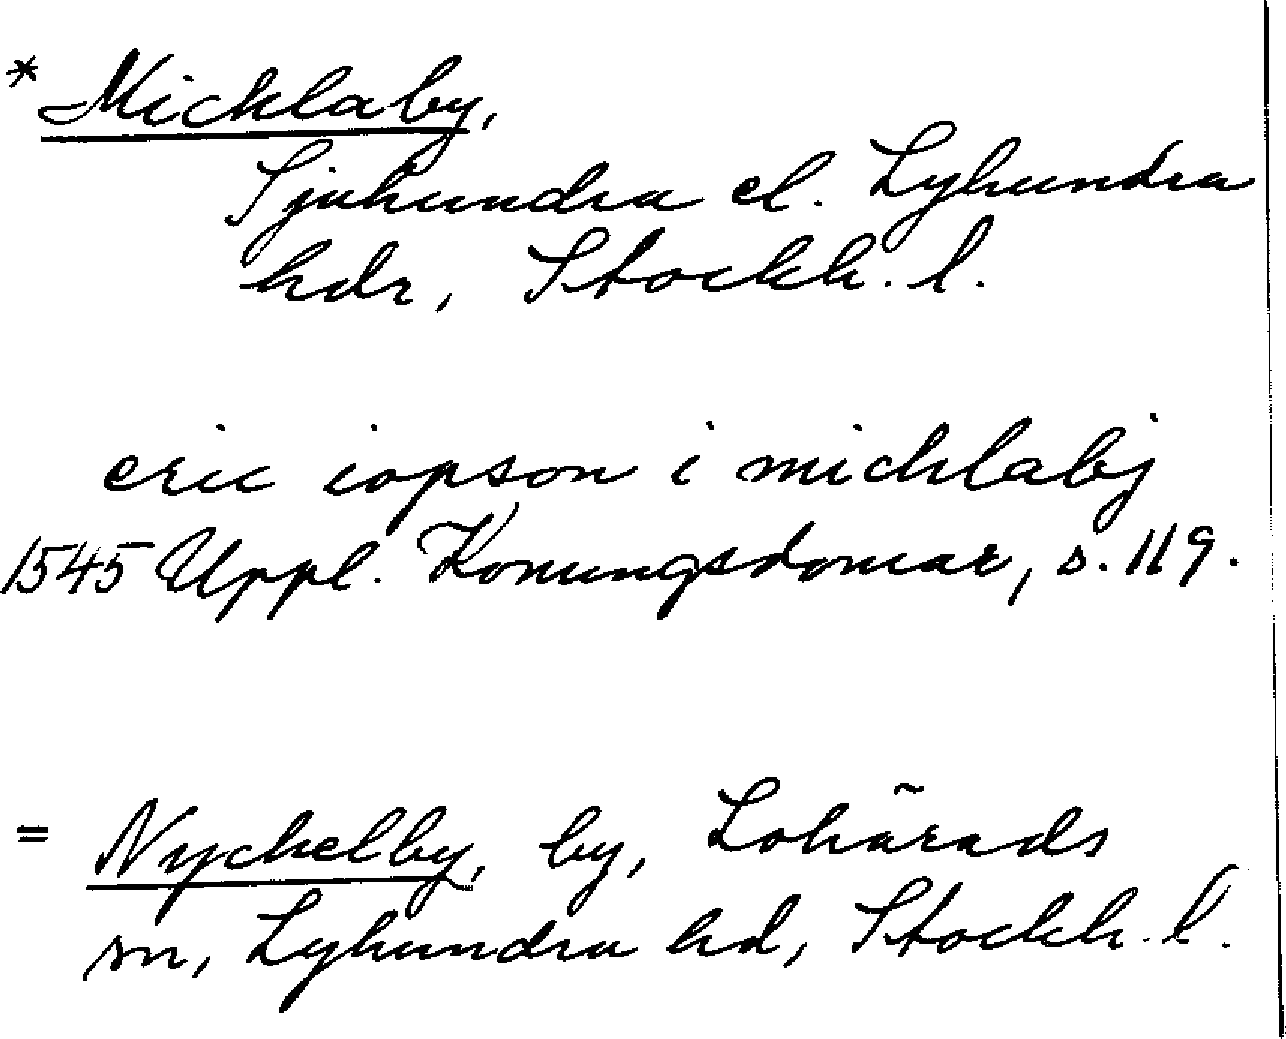 * Micklaby,
Sjuhundra el. Lyhundra
hdr, Stockh. l.
eric iopson i micklabj
1545 Uppl. Konungsdomar, s. 119.
= Nyckelby, by, Lohärads
sn, Lyhundra hd, Stockh. l.